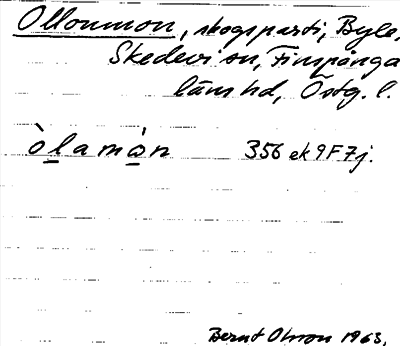 Olloumon, skogsparti, Byle,
Skedevi sn, Finspånga
läns hd, Östg. l.
òlamón 356 ek 9F7j.
Bernt Olsson 1963.